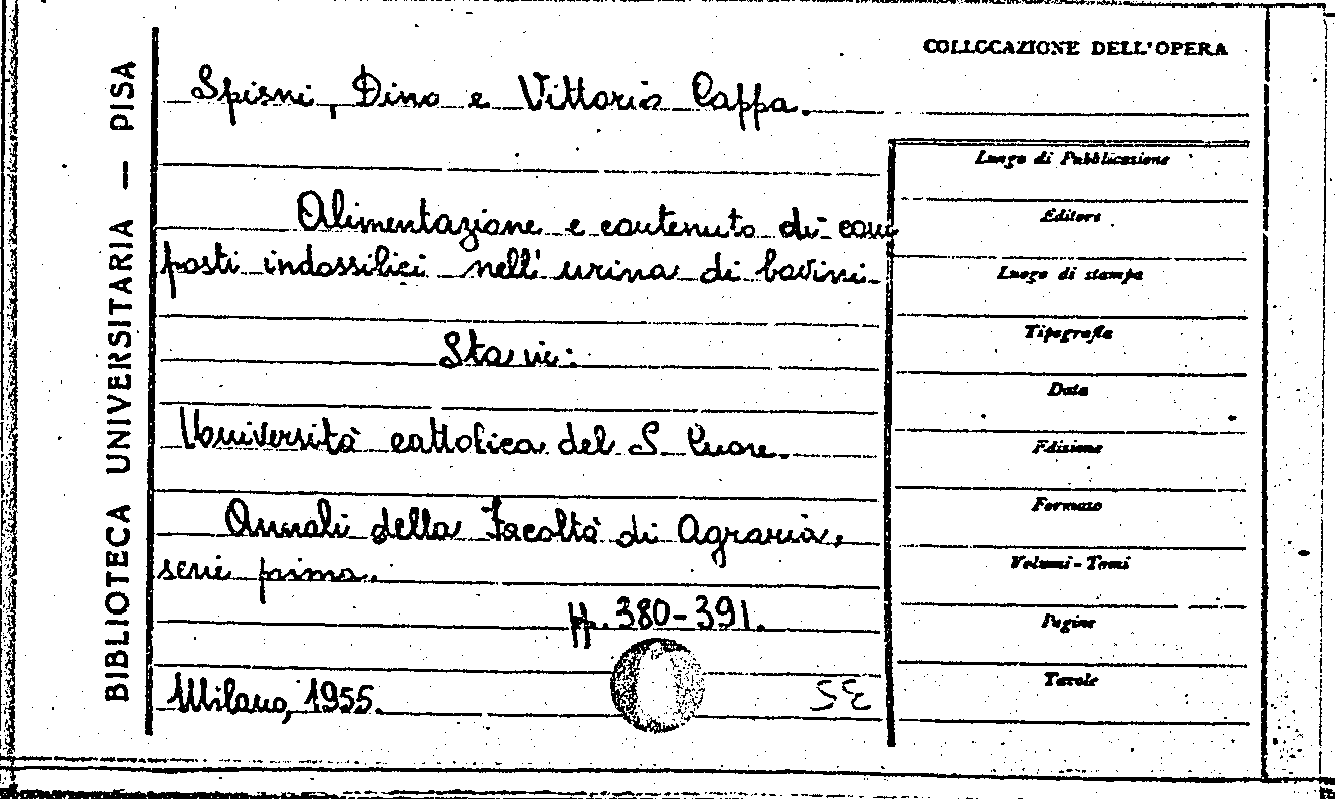 COLLOCAZIONE DELL'OPERA
BIBLIOTECA UNIVERSITARIA — PISA
Spisni, Dino e Vittorio Cappa.
Alimentazione e contenuto di com
posti indossilici nell'urina di bovini.
Sta in:
Università cattolica del S. Cuore.
Annali della Facoltà di Agraria,
serie prima.
pp. 380-391.
Milano, 1955.
Luogo di Pubblicazione
Editore
Luogo di stampa
Tipografia
Data
Edizione
Formato
Volumi - Tomi
Pagine
Tavole